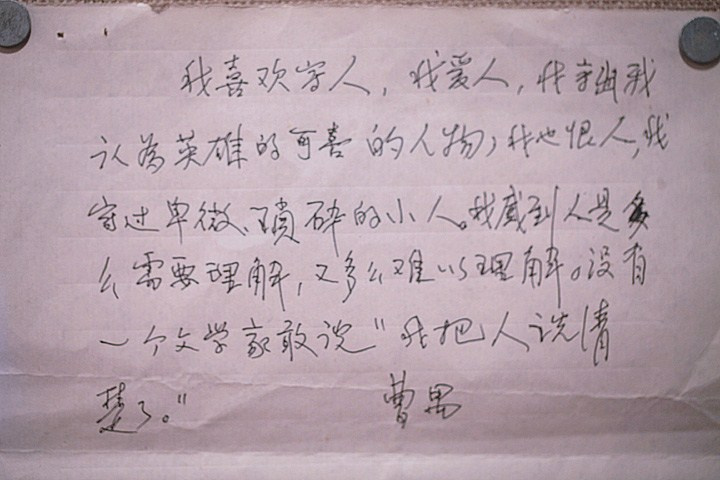 我喜欢写人，我爱人，我写出我
认为英雄的可喜的人物；我也恨人，我
写过卑微、琐碎的小人。我感到人是多
么需要理解，又多么难以理解。没有
一个文学家敢说“我把人说清
楚了。”
曹禺